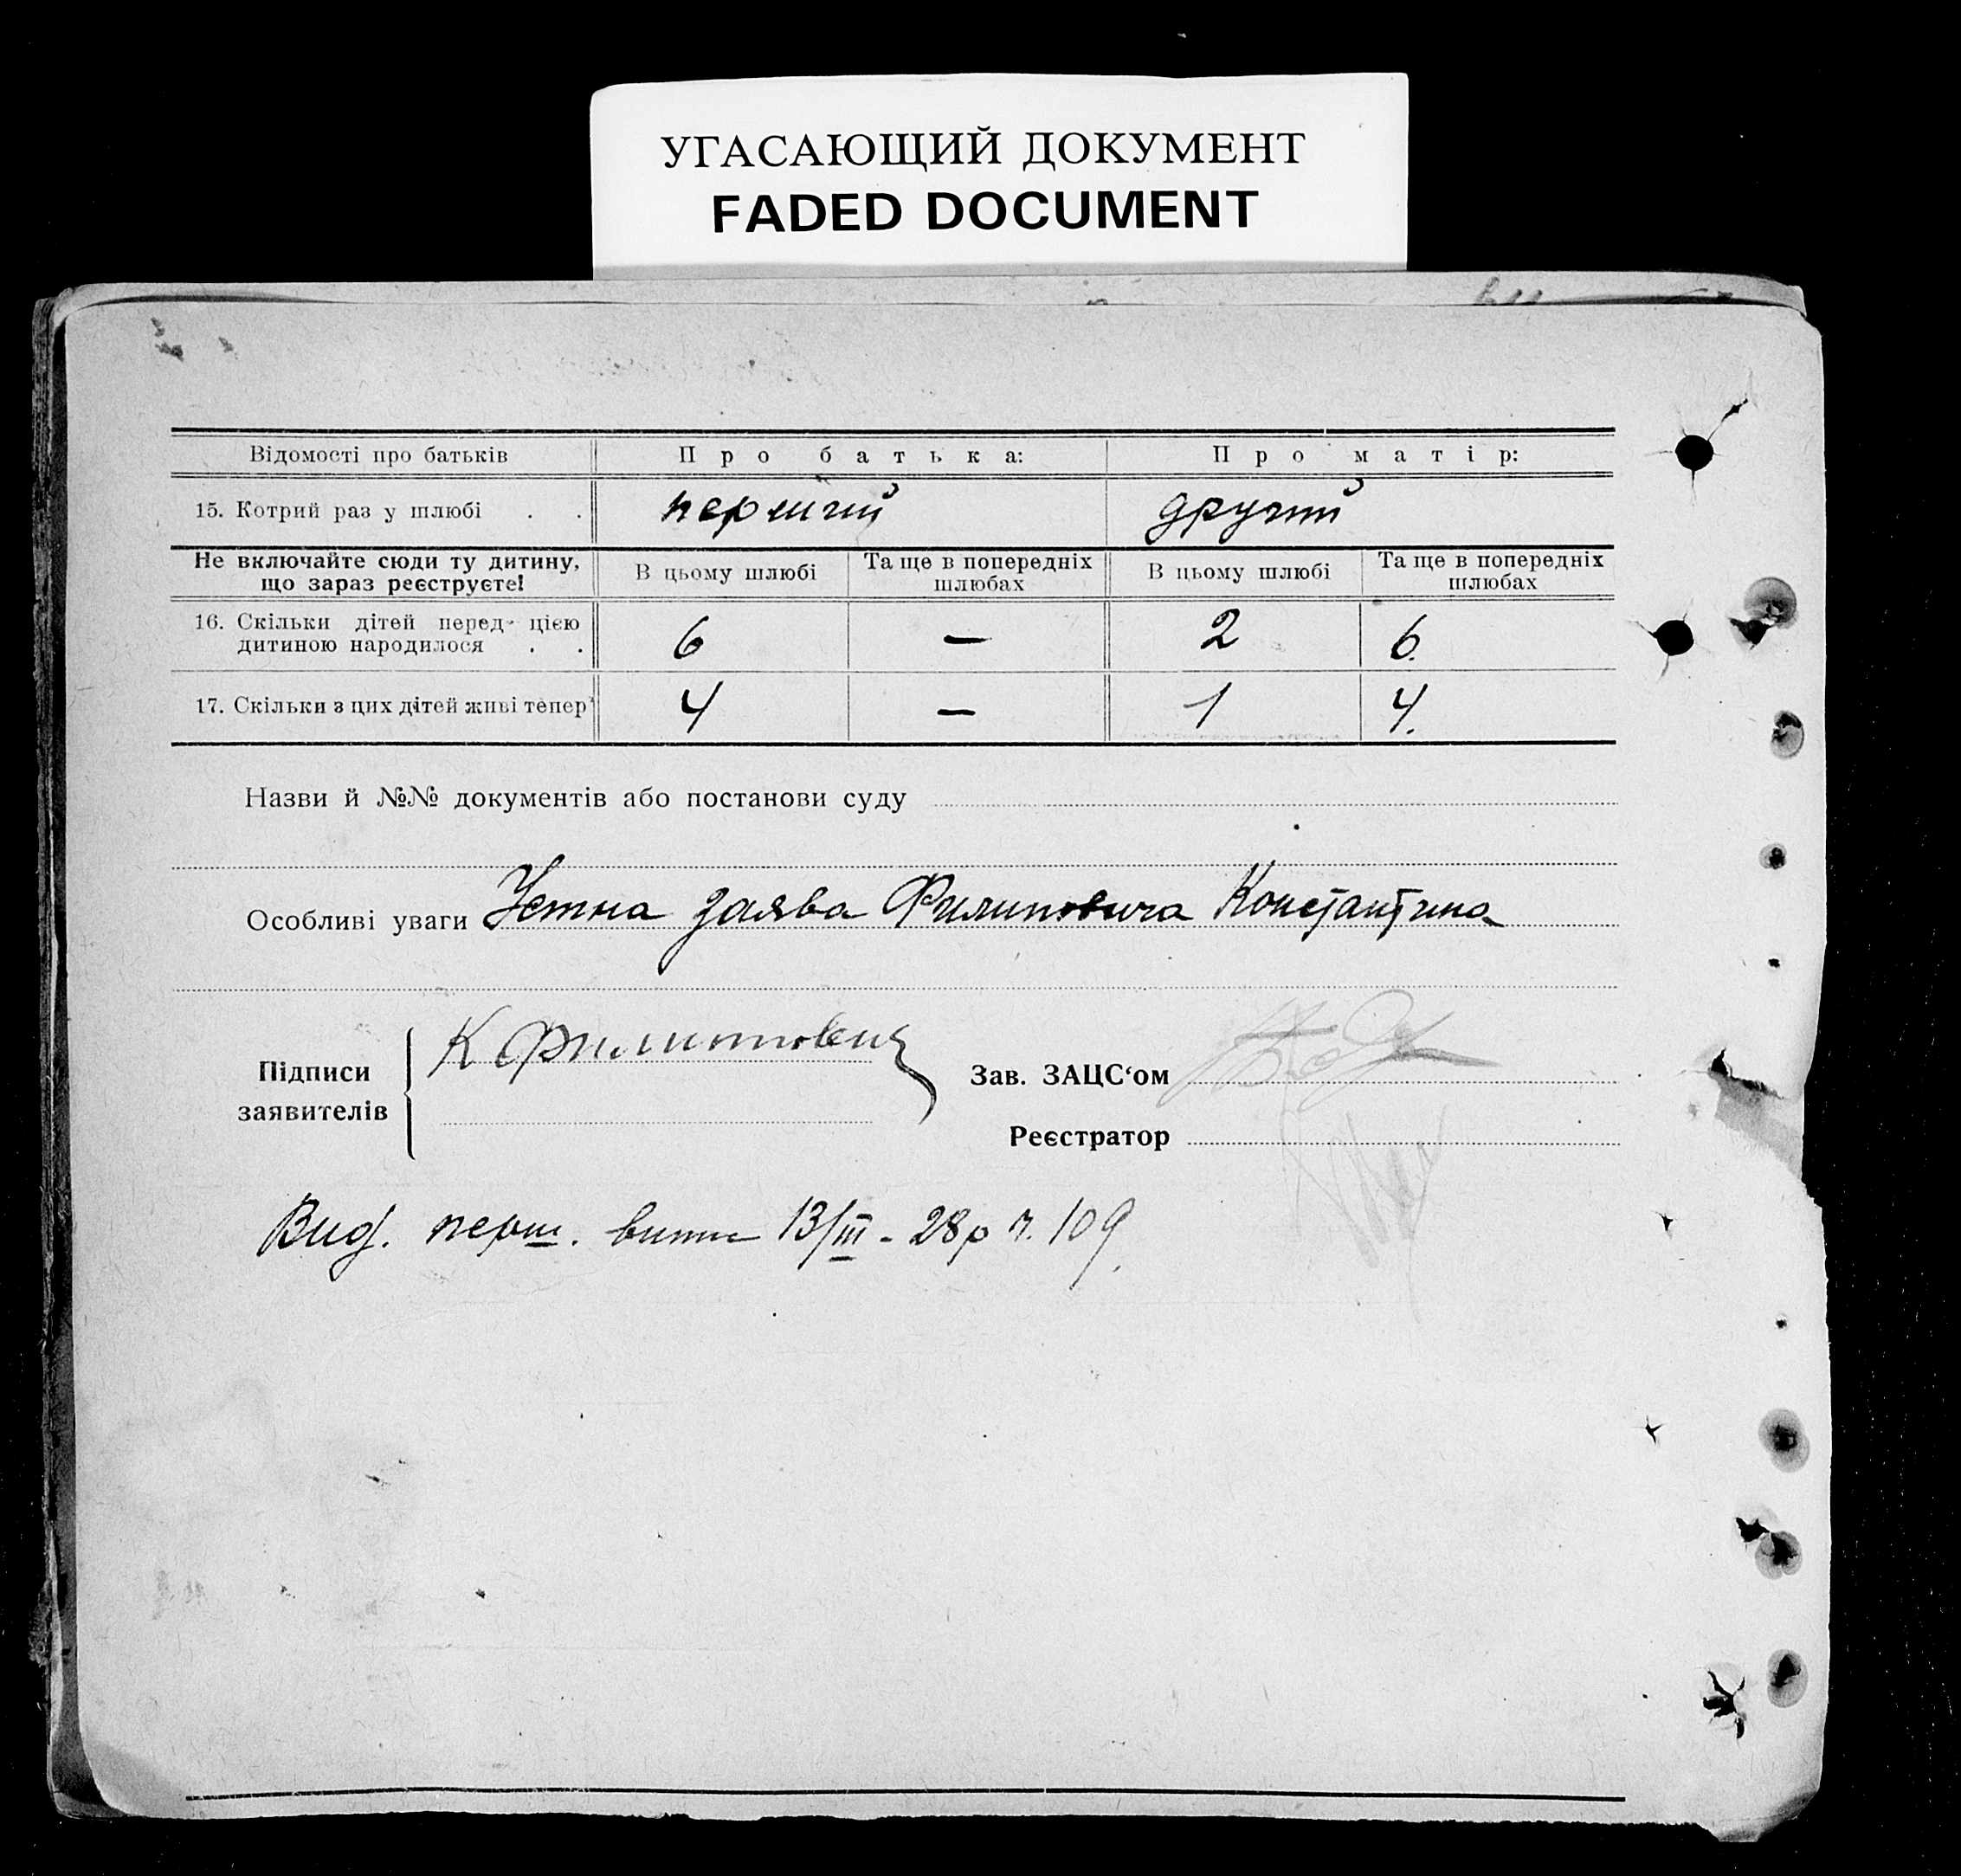 УГАСАЮЩИЙ ДОКУМЕНТ
FADED DOCUMENT
Відомості про батьків Про батька: Про матір:
15. Котрий раз у шлюбі . . перший другий
Не включайте сюди ту дитину, що зараз реєструєте! В цьому шлюбі Та ще в попередніх шлюбах В цьому шлюбі Та ще в попередніх шлюбах
16. Скільки дітей перед цією
дитиною народилося . . 6 — 2 6.
17. Скільки з цих дітей живі тепер 4 — 1 4.
Назви й №№ документів або постанови суду
Особливі уваги Устна заява Филиповича Константина
Підписи заявителів К Филиппович
Зав. ЗАЦС‘ом
Реєстратор
Вид. перш. витяг 13/III - 28р ч. 109.